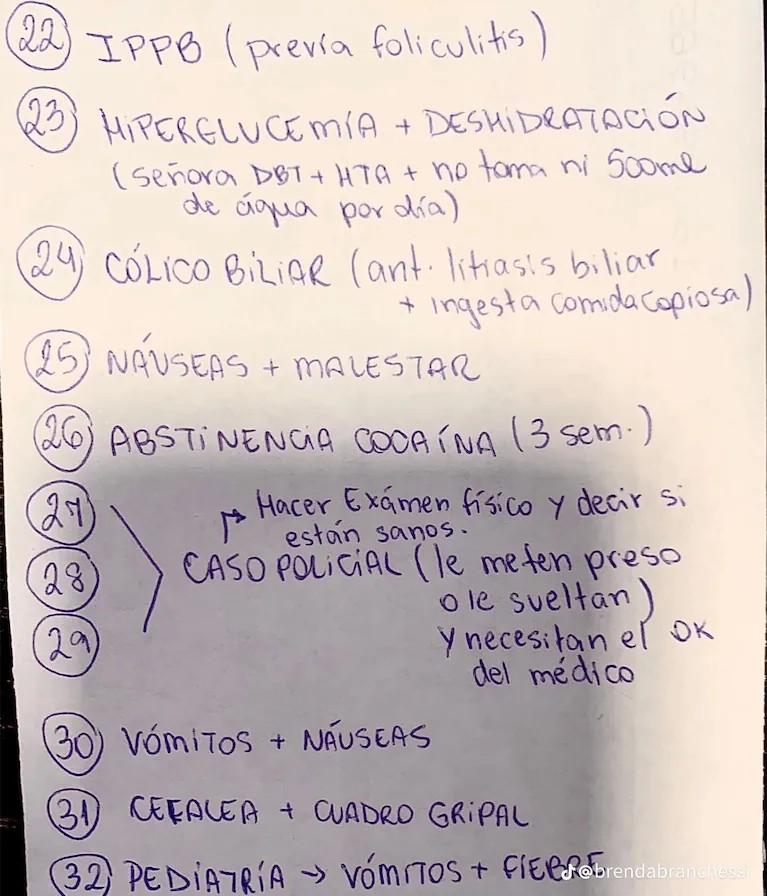 22 IPPB (previa foliculitis)
23 HIPERGLUCEMIA + DESHIDRATACIÓN
(señora DBT + HTA + no toma ni 500ml
de água por día)
24 CÓLICO BILIAR (ant. litiasis biliar
+ ingesta comida copiosa)
25 NÁUSEAS + MALESTAR
26 ABSTINENCIA COCAÍNA (3 sem.)
27
Hacer Exámen físico y decir si
están sanos.
28 CASO POLICIAL (le meten preso
o le sueltan)
29 y necesitan el OK
del médico
30 VÓMITOS + NÁUSEAS
31 CEFALEA + CUADRO GRIPAL
32 PEDIATRÍA → VÓMITOS + FIEBRE
@brendabranchessi